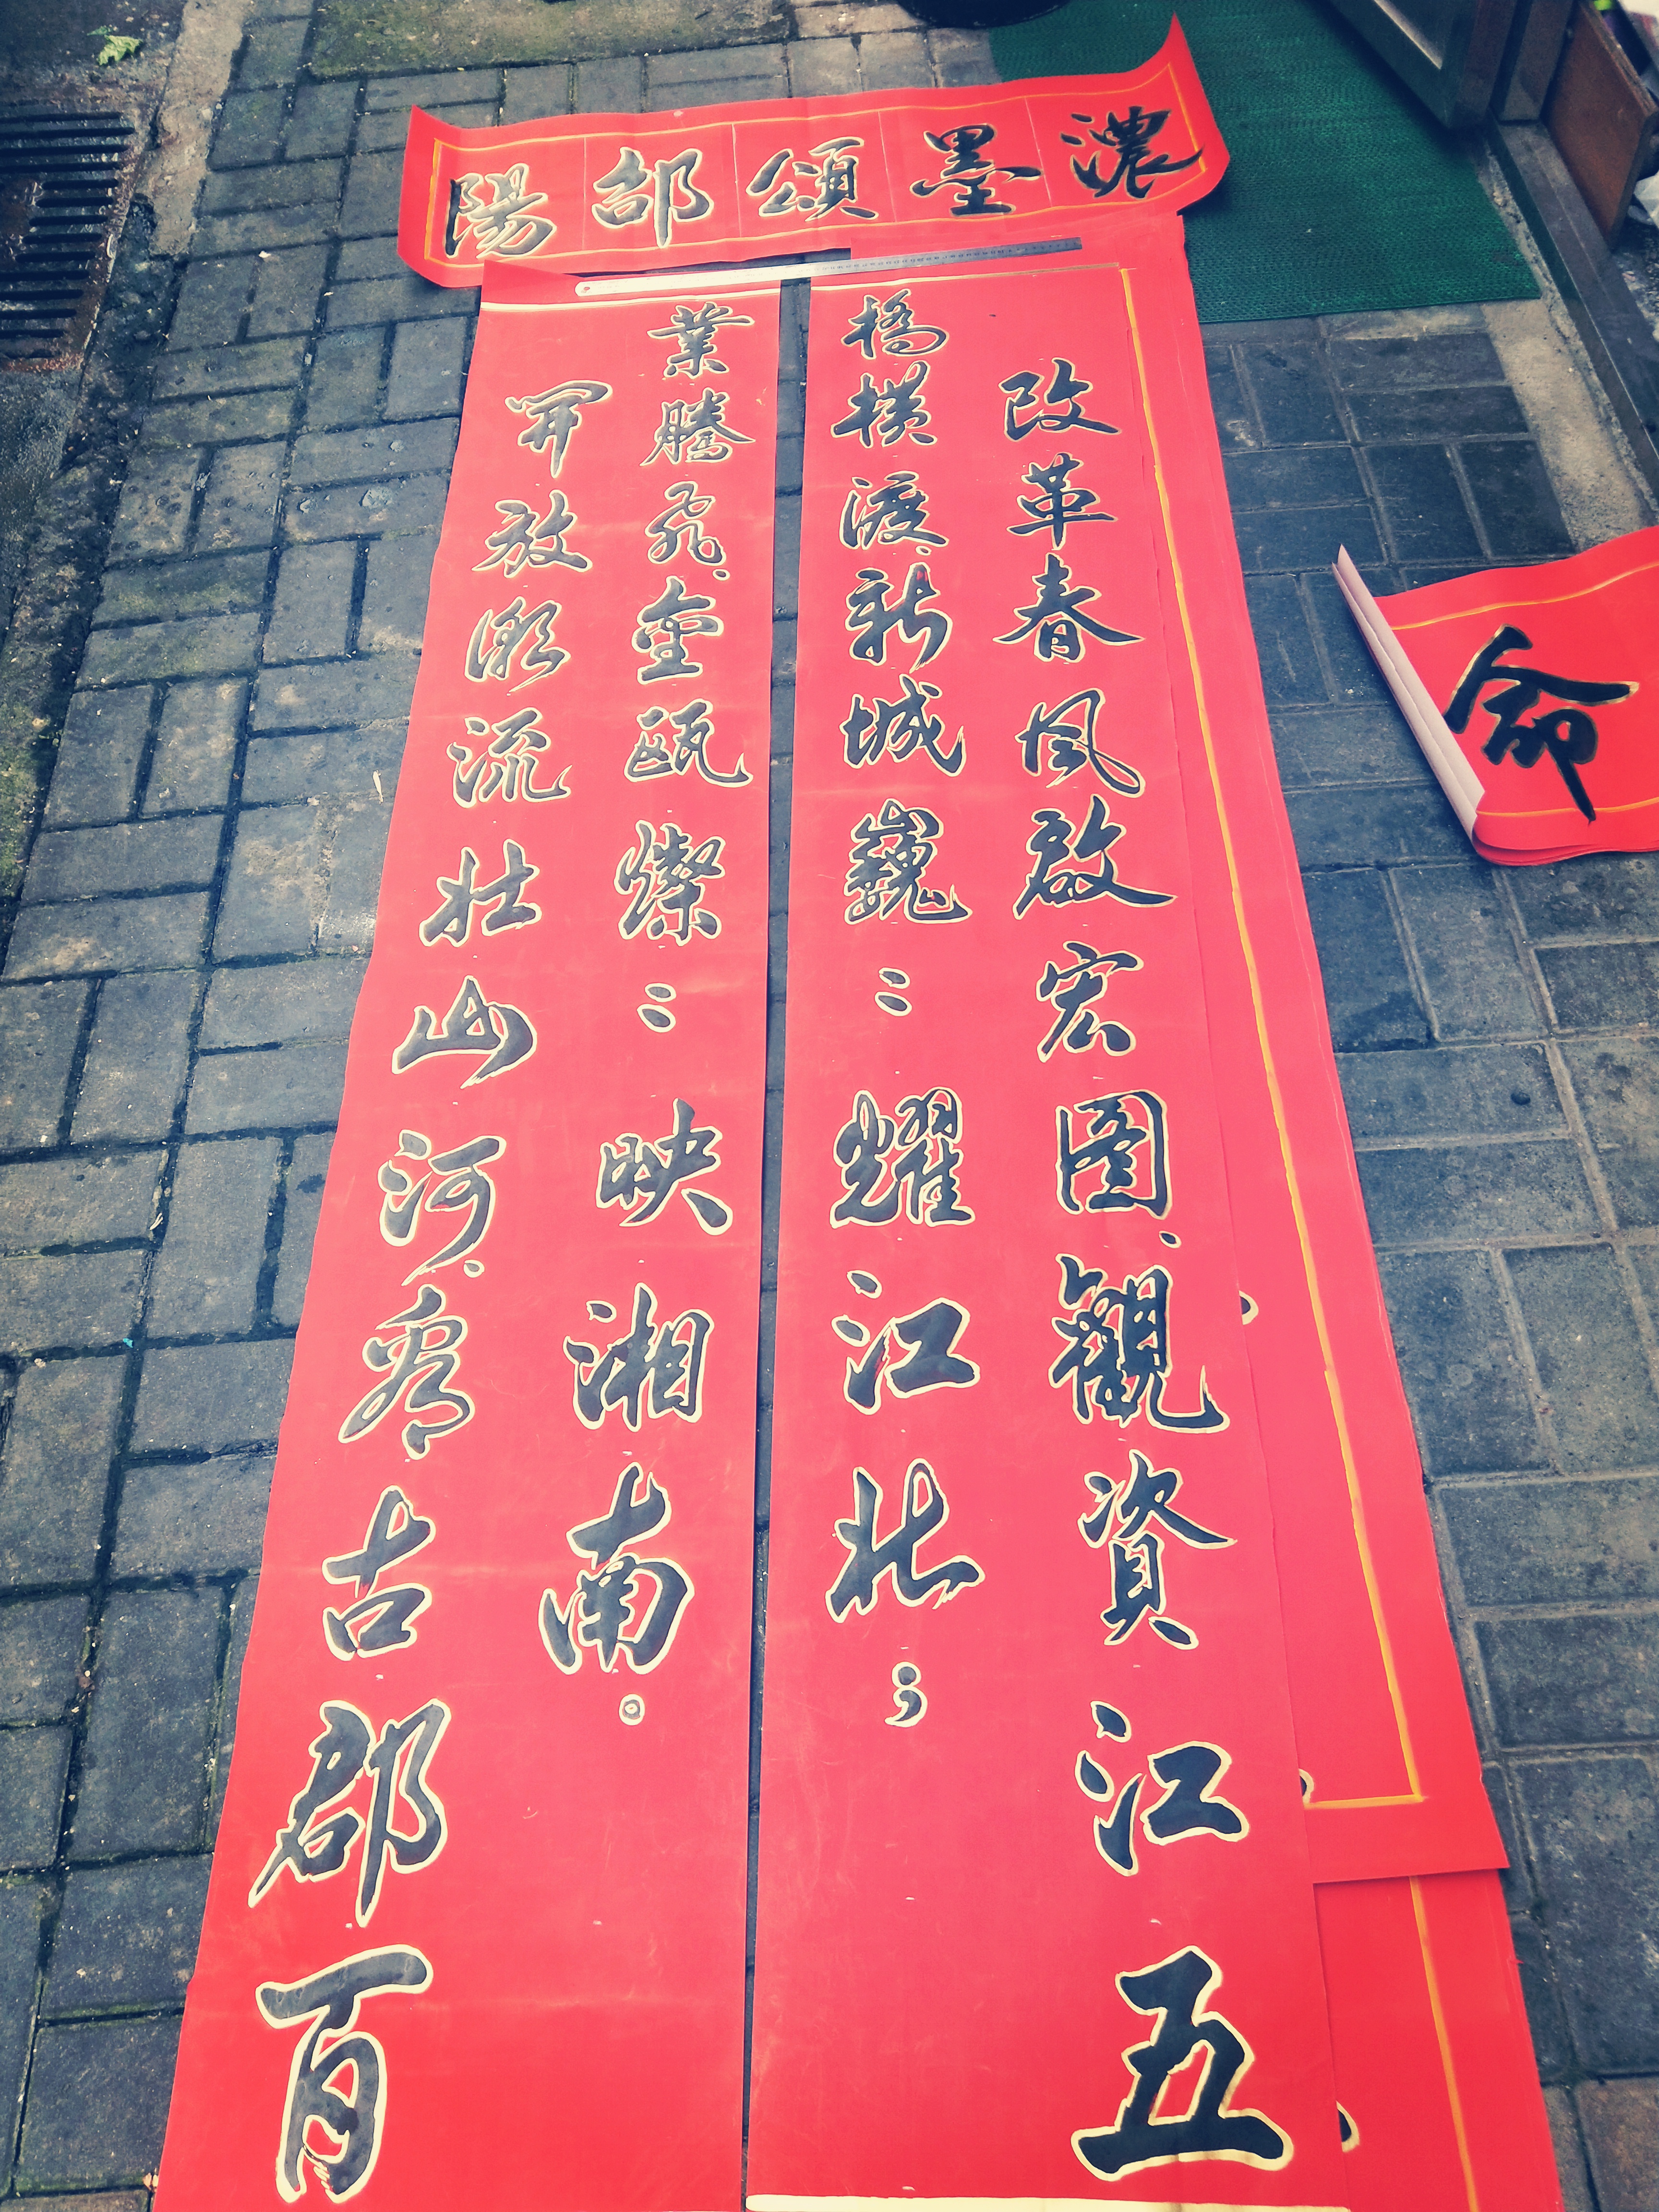 濃墨頌邵陽
改革春风啟宏图、觀資江五
橋横渡、新城巍〻耀江北；
開放潮流壮山河、看古郡百
業騰飛、金瓯燦〻映湘南。
命